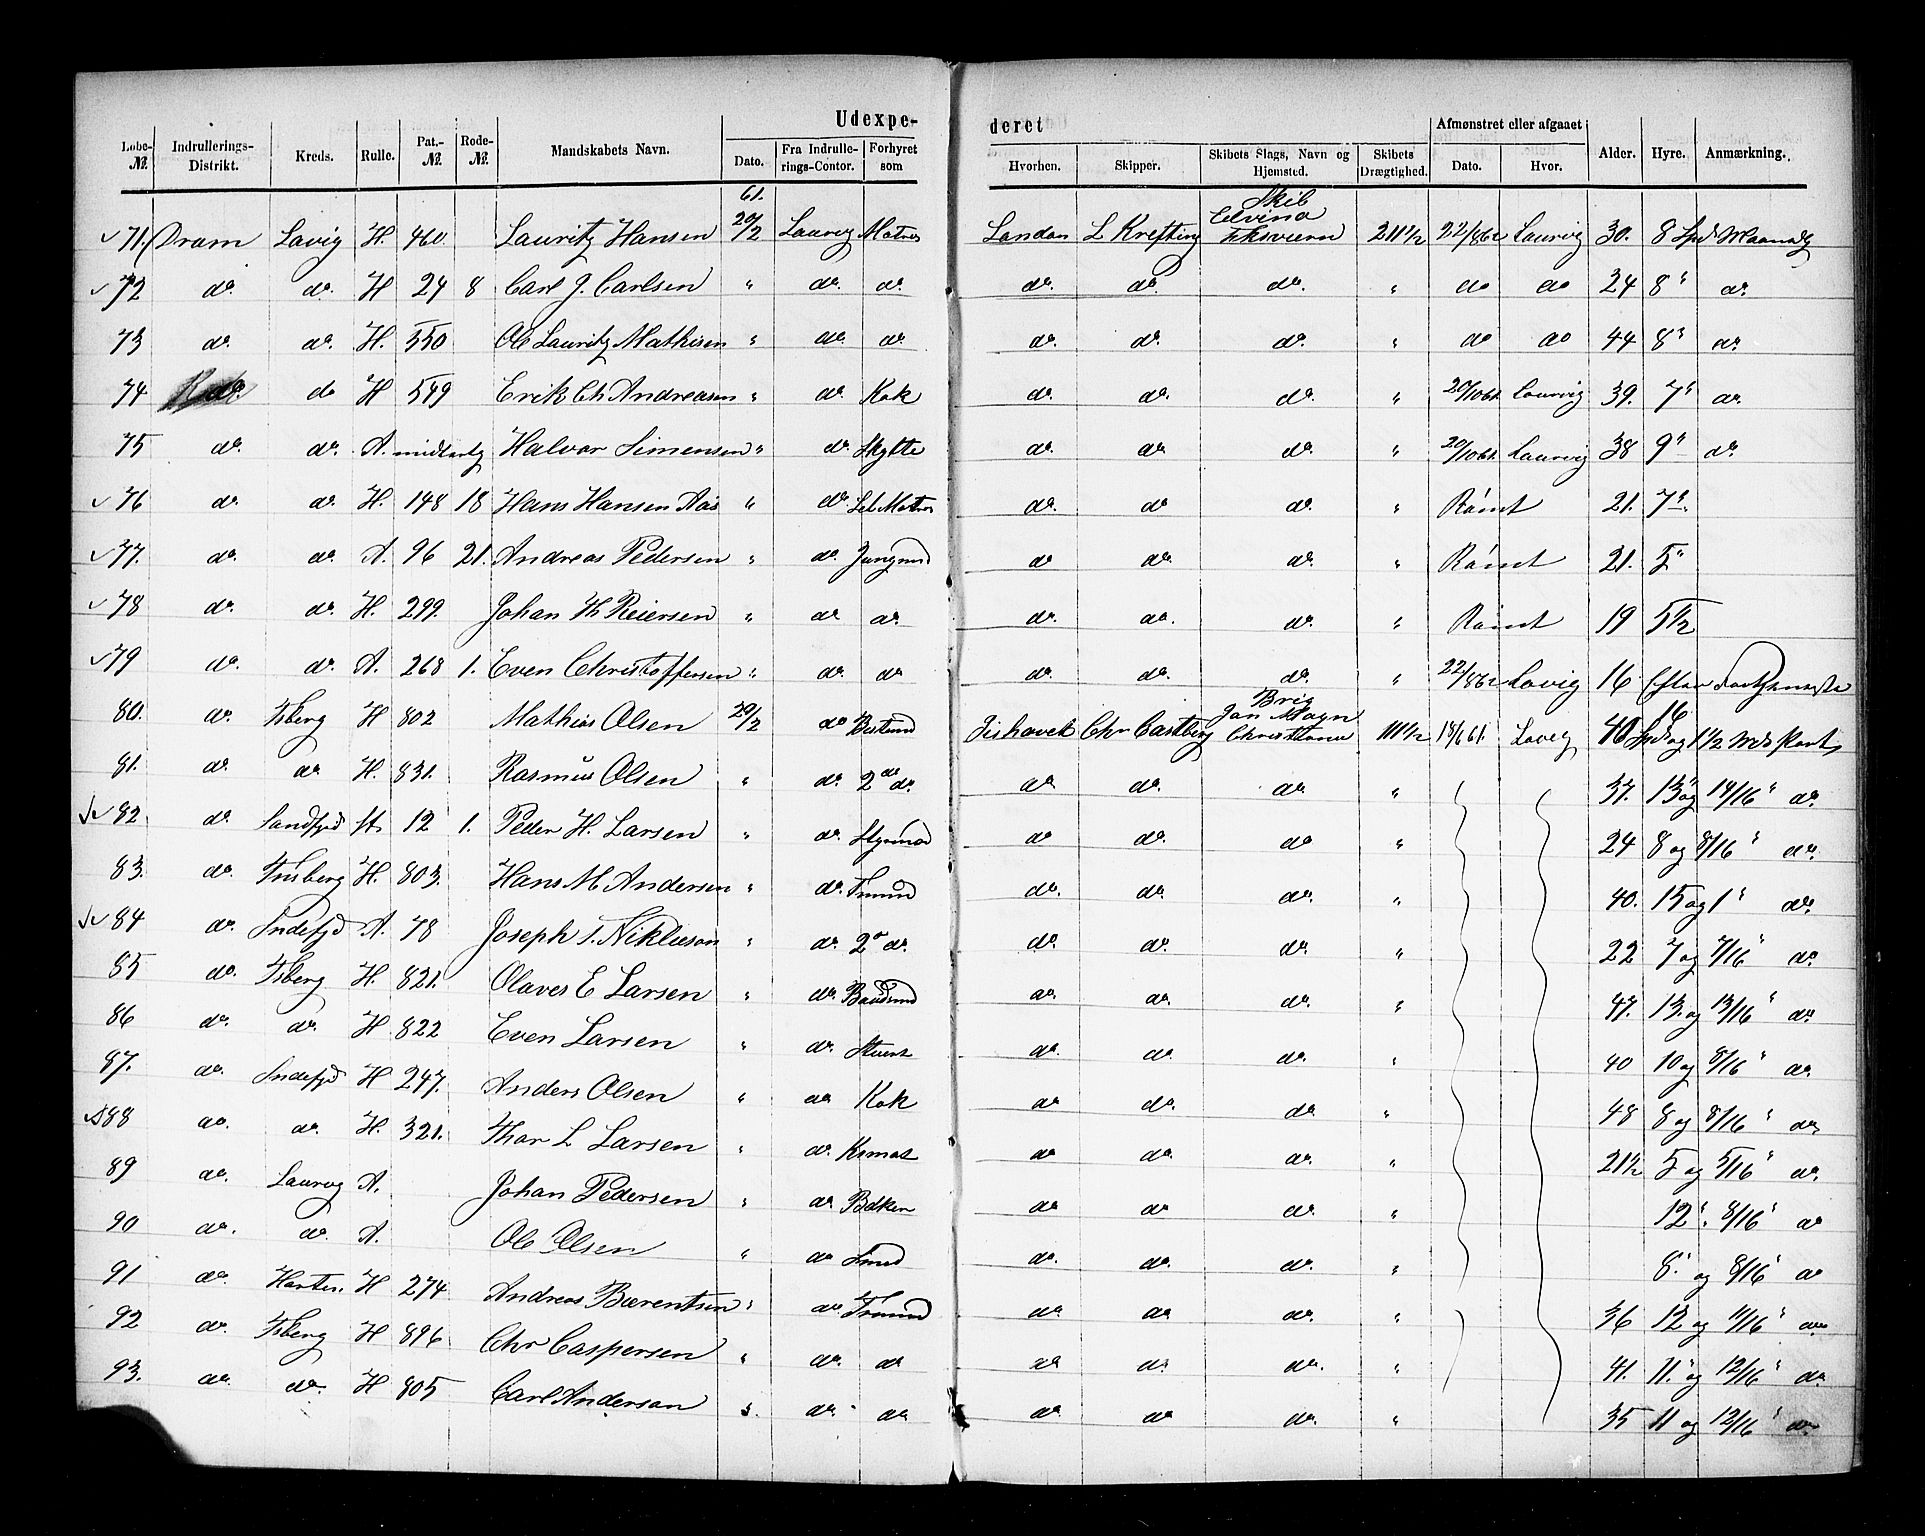 Udexpe- deret
Løbe-№. Indrullerings-Distrikt. Kreds. Rulle. Pat.-№. Rode-№. Mandskabets Navn. Dato. Fra Indrullerings-Contor. Forhyret som Hvorhen. Skipper. Skibets Slags, Navn og Hjemsted. Skibets Drægtighed. Afmønstret eller afgaaet Dato. Hvor. Alder. Hyre. Anmærkning.
61. Skib
71. Dram Lavig H. 460 Lauritz Hansen 20/2 Laurvig Matros London L Krefting Elvina 211 1/2 22/8 62 Laurvig 30. 8 Spd Maanedlg
72 do. do. H 24 8 Carl J. Carlsen " do. do. do. do. do. " do do 24 8 " do.
73 do. do. H. 550 Ole Lauritz Mathisen " do. do do. do. do. " do do 44 8 " do.
74 do. do H 549 Erik Ch Andreasen " do. Kok do. do. do. " 20/10 61. Laurvig 39. 7 " do.
75 do. do. A. Halvor Simensen " do. do. do. do. " 20/10 61. Laurvig 38 9 " do.
76 do. do. H. 148 18 Hans Hansen Aas " do. Let Matros do. do do. " Rømt 21. 7 "
77. do. do. A. 96 21. Andreas Pedersen " do. Jungmd do do. do. " Rømt 21. 5 "
78 do. do. H. 299. Johan Th Reiersen " do do. do. do. do. " Rømt 19 5 1/2
79 do. do. A. 268 1. Even Christoffersen " do. do do. do. do. " 22/8 62 Lavig 16 Efter Fortjeneste
Brig
80. do. Tsberg H 802 Mathias Olsen 20/2 do Bestmd Jishavet Chr Castberg Jan Mayn Christiania 111 1/2 18/6 61. Lavig 40 16 Spd og 1 1/2 Mds Part
81. do do H. 831. Rasmus Olsen " do. 2de do. do. do. do. " 37. 13 og 14/16 " do.
82. do. Sandfjrd St. 12 1. Peder H. Larsen " do. Styrmd do do. do " 24 8 og 8/16 " do.
83. do. Tnsberg H. 803. Hans M. Andersen " do. do. do. do. " 40. 15 og 1 " do.
84 do. Sndefjd A. 78 Joseph T. Nikleson " do. 2o do. do. do. do. " 22 7 og 7/16 " do
85 do. Tsberg H. 821. Olaves E Larsen " do. Baadsmd do. do. do. " 47. 13. og 13/16 " do.
86 do. do. H 822 Even Larsen " do. Stuert do. do. do. " 40 10 og 8/16 " do.
87. do. Sndefjd H 247. Anders Olsen " do Kok do do. do " 48 8 og 8/16 " do
88 do. do. H. 321. Thor L Larsen " do. Komat do do. do. " 21 1/2 5 og 5/16 " do.
89 do. Laurvg A. Johan Pedersen " do. Bdken do do do. " 12 ". 8/16 " do
90 do. do. A. Ole Olsen " do Smed do. do. do. " 8 " og 8/16 " do
91 do. H 274 Andreas Bærentsen " do. do. do do. " 36 12 og 11/16 " do
92 do. Tsberg H 896 Chr Caspersen " do. do do do. do. " 41. 11. " og 12/16 " do.
93. do. do. H 805 Carl Anderson " do. do. do. do do. " 35 11 og 12/16 " do.